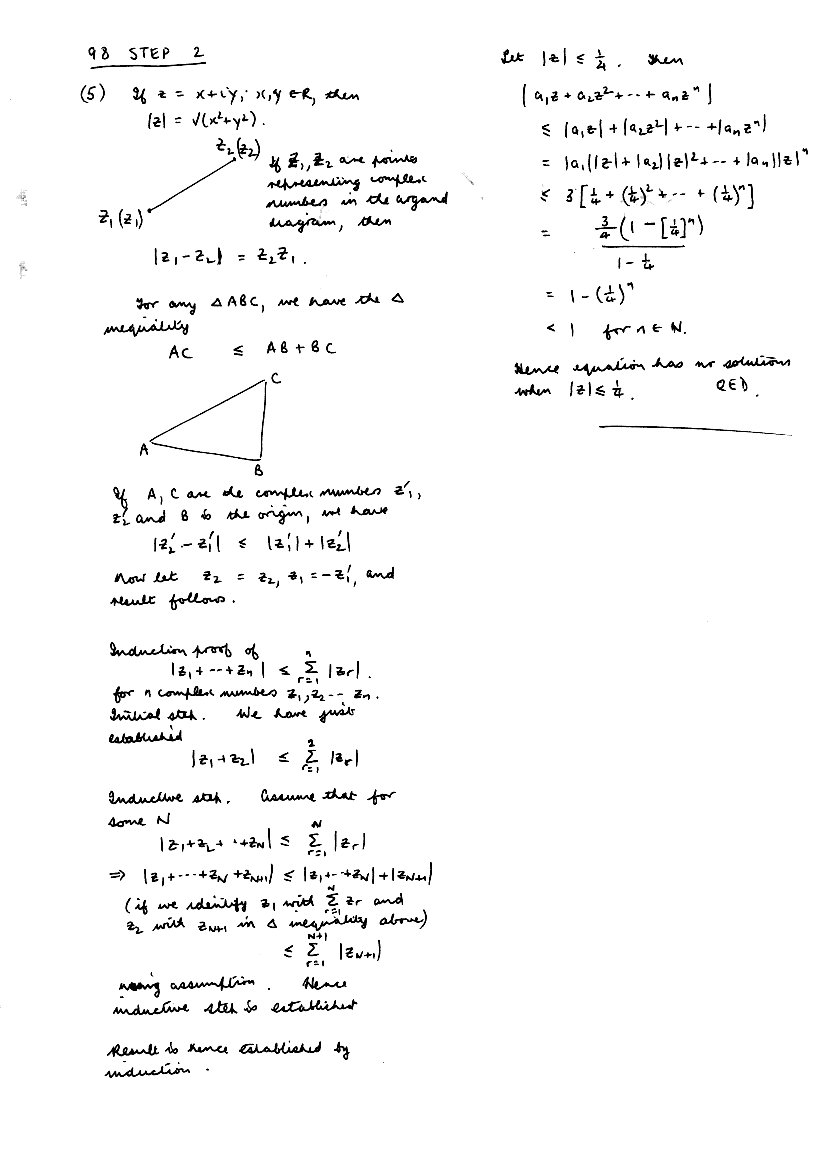 98 STEP 2
(5) If z = x+iy, x,y ∈ R, then
|z| = √(x²+y²).
Z₂(z₂)
Z₁(z₁)
If Z₁, Z₂ are points
representing complex
numbers in the argand
diagram, then
|z₁ - z₂| = Z₂Z₁.
For any △ABC, we have the △
inequality
AC ≤ AB + BC
C
A
B
If A, C are the complex numbers z₁',
z₂' and B is the origin, we have
|z₂' - z₁'| ≤ |z₁'| + |z₂'|
Now let z₂ = z₂, z₁ = -z₁', and
result follows.
Induction proof of
|z₁ + --- + zₙ| ≤ Σ_{r=1}^{n} |zᵣ|.
for n complex numbers z₁, z₂ -- zₙ.
Initial step. We have just
established
|z₁ + z₂| ≤ Σ_{r=1}^{2} |zᵣ|
Inductive step. Assume that for
some N
|z₁ + z₂ + ·· + z_N| ≤ Σ_{r=1}^{N} |zᵣ|
⇒ |z₁ + --- + z_N + z_{N+1}| ≤ |z₁ + -- + z_N| + |z_{N+1}|
(if we identify z₁ with Σ_{r=1}^{N} zᵣ and
z₂ with z_{N+1} in △ inequality above)
≤ Σ_{r=1}^{N+1} |z_{N+1}|
using assumption. Hence
inductive step is established
Result is hence established by
induction.
Let |z| ≤ 1/4. Then
|a₁z + a₂z² + --- + aₙzⁿ|
≤ |a₁z| + |a₂z²| + --- + |aₙzⁿ|
= |a₁||z| + |a₂||z|² + --- + |aₙ||z|ⁿ
≤ 3[1/4 + (1/4)² + -- + (1/4)ⁿ]
= 3/4(1 - [1/4]ⁿ) / (1 - 1/4)
= 1 - (1/4)ⁿ
< 1 for n ∈ N.
Hence equation has no solutions
when |z| ≤ 1/4. QED.